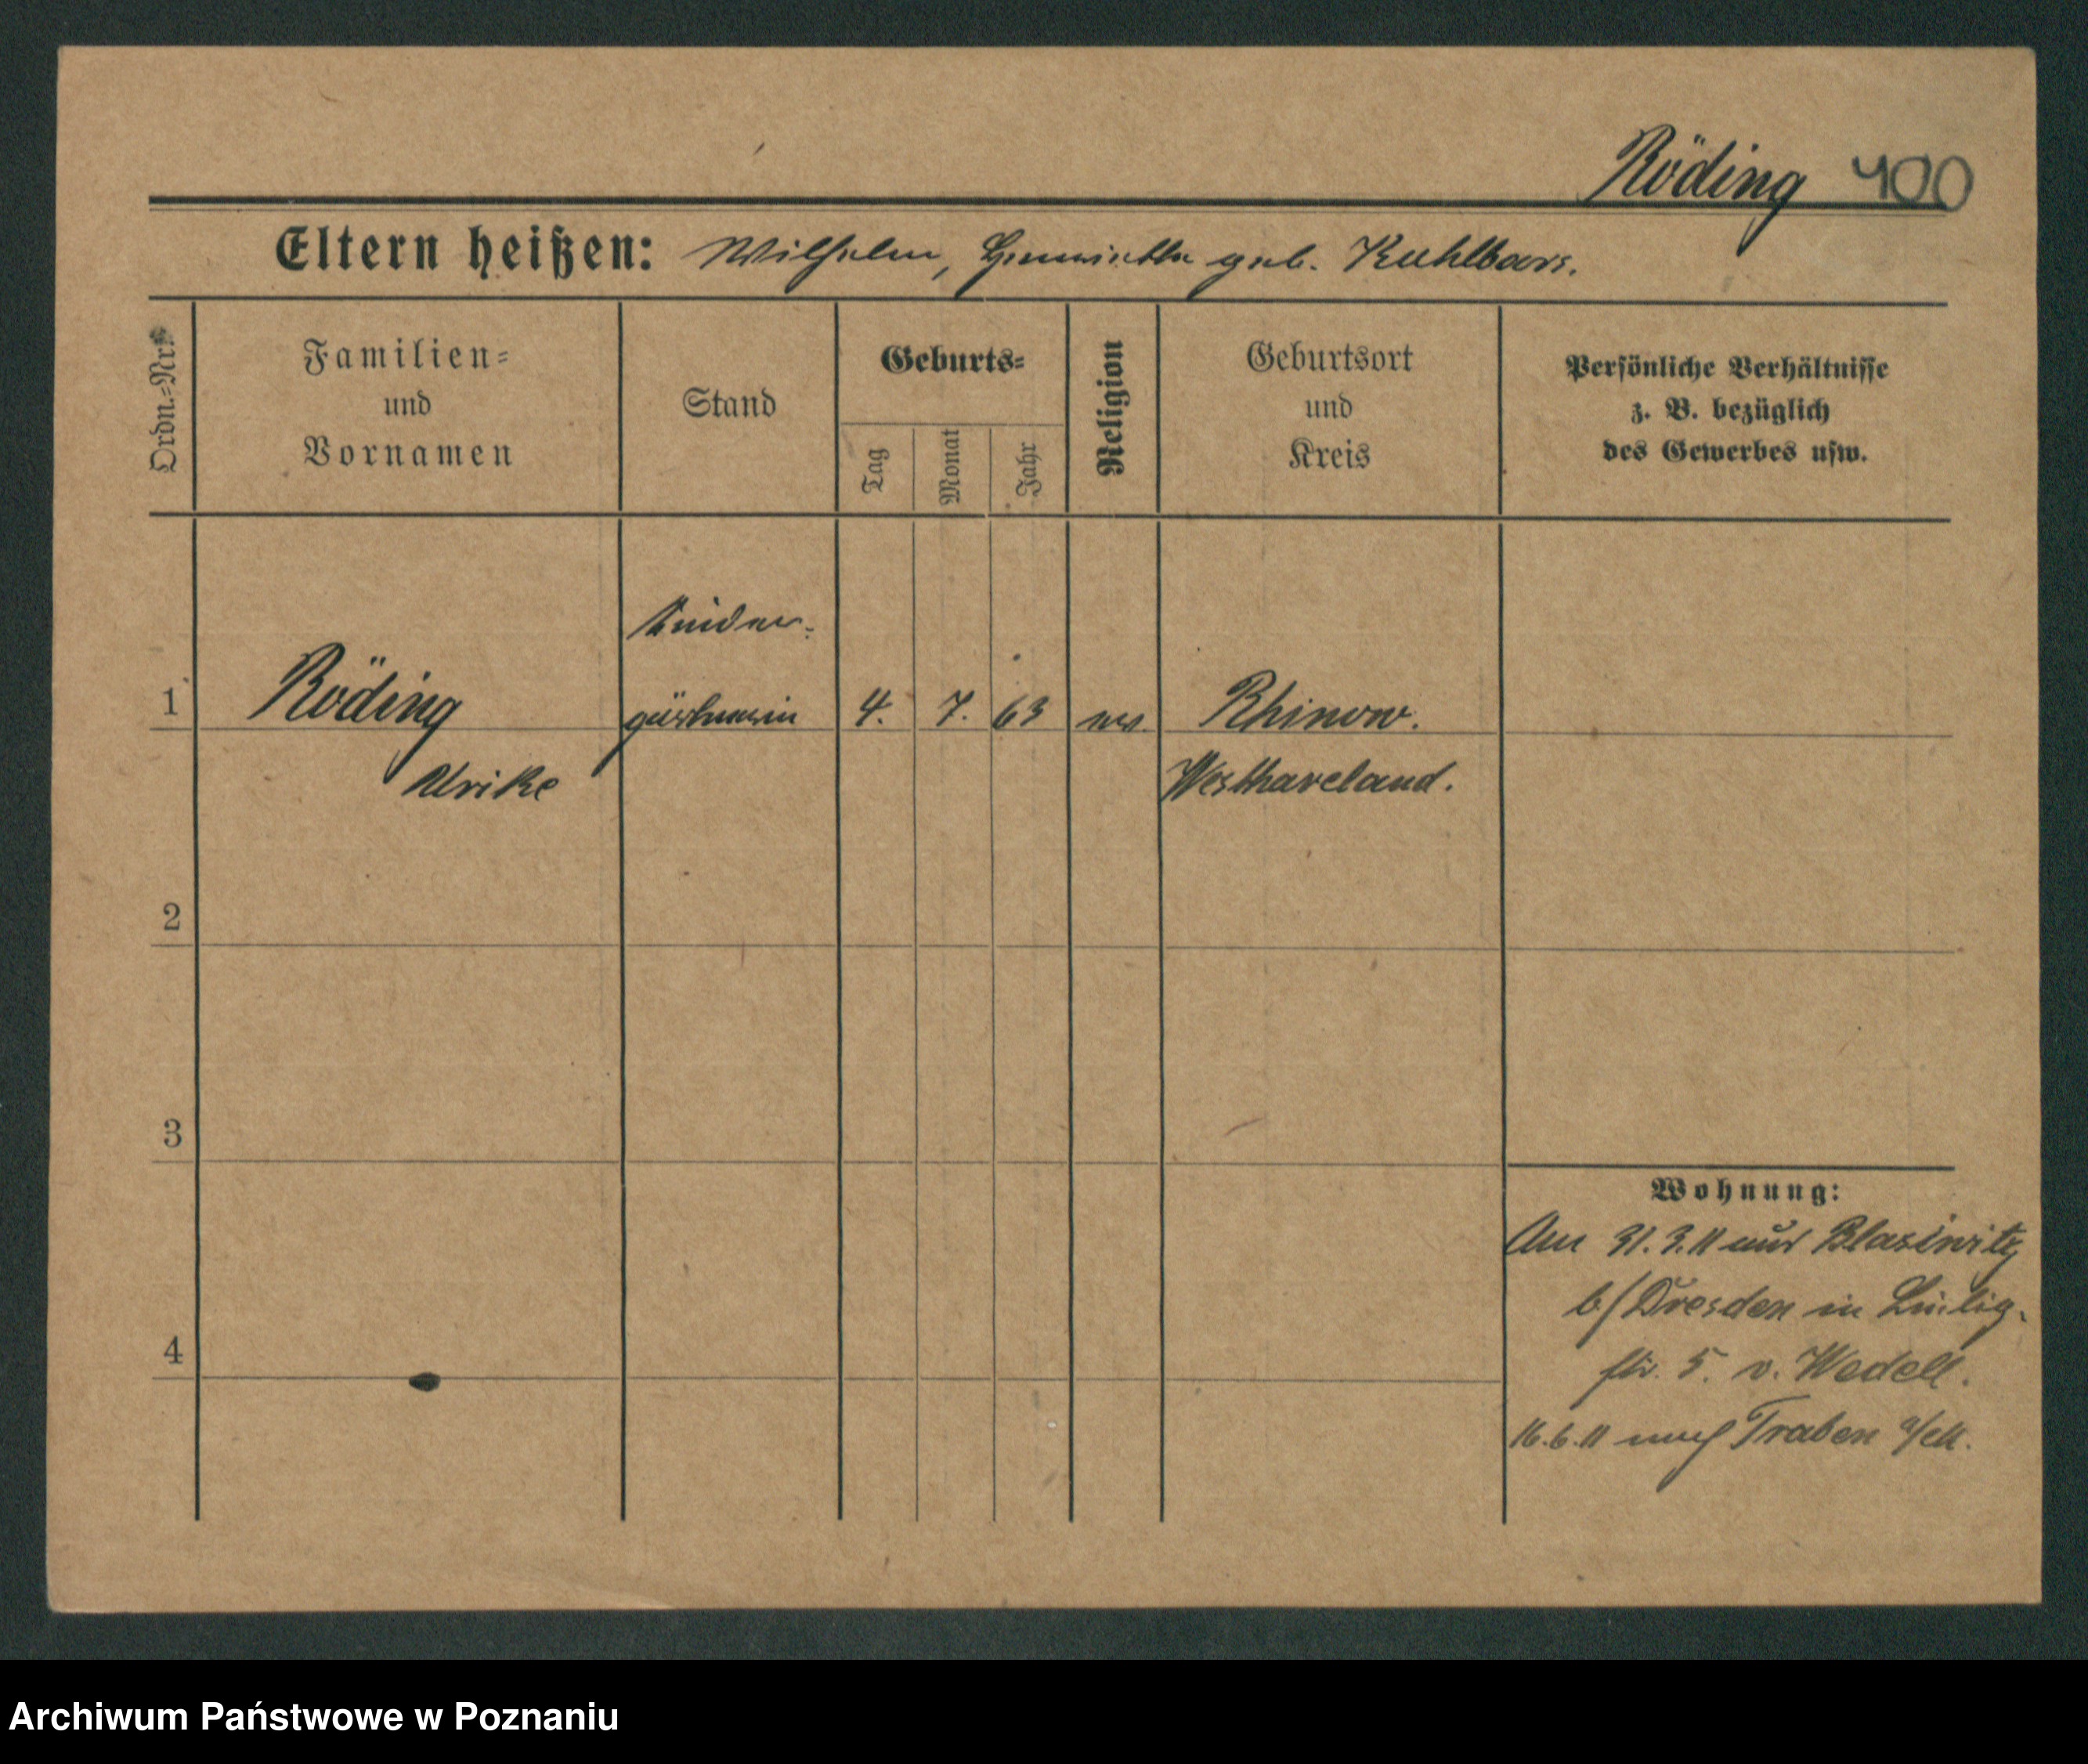 Röding 400
Eltern heißen: Wilhelm, Henriette geb. Kuhlbars.
Ordn.-Nr.
Familien-
und
Vornamen
Stand
Geburts-
Tag
Monat
Jahr
Religion
Geburtsort
und
Kreis
Persönliche Verhältnisse
z. B. bezüglich
des Gewerbes usw.
Kinder-
1 Röding gärtnerin 4. 7. 63 ev. Rhinow.
Ulrike Westhaveland.
2
3
4
Wohnung:
Am 31.3.11 aus Blasewitz
b/Dresden in
str. 5. v. Wedell.
16.6.11 nach Traben a/M.
Archiwum Państwowe w Poznaniu